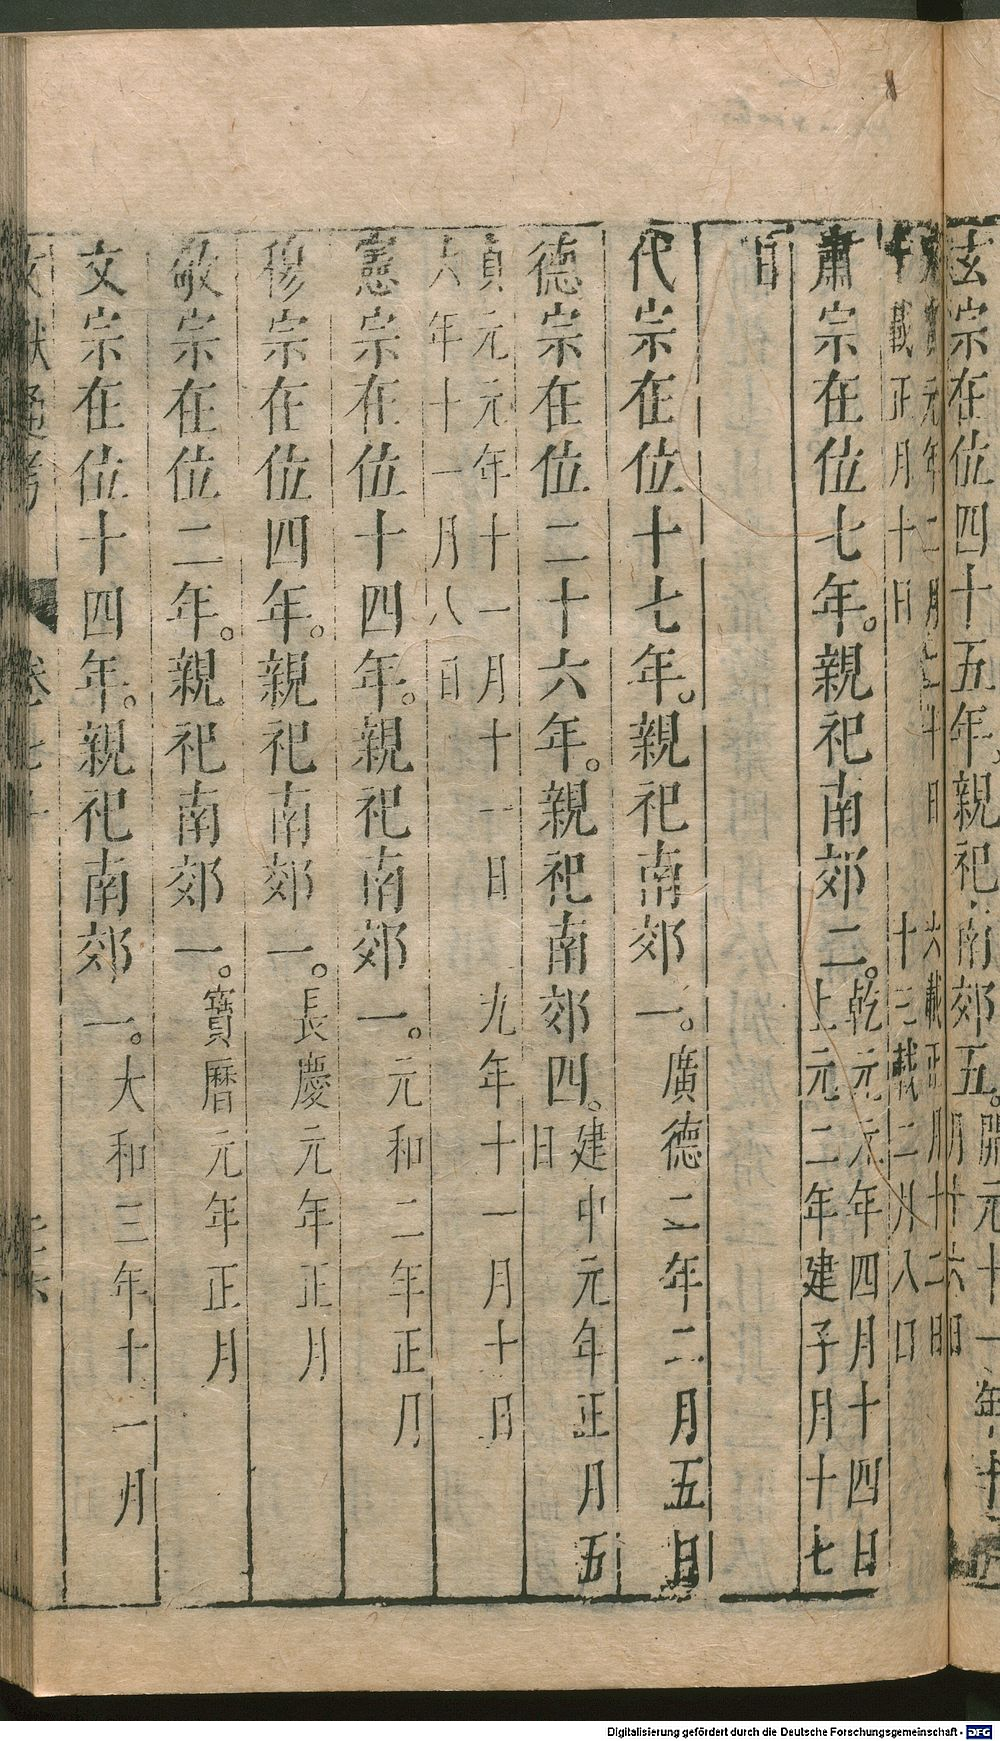 玄宗在位四十五年。親祀南郊五。開元十一年十
月廿六日
天寶元年二月二十日　六載正月十二日
十載正月十日　十三載二月八日
肅宗在位七年。親祀南郊二。乾元元年四月十四日
上元二年建子月十七
日
代宗在位十七年。親祀南郊一。廣德二年二月五日
德宗在位二十六年。親祀南郊四。建中元年正月五
日
貞元元年十一月十一日　九年十一月十日
六年十一月八日
憲宗在位十四年。親祀南郊一。元和二年正月
穆宗在位四年。親祀南郊一。長慶元年正月
敬宗在位二年。親祀南郊一。寶曆元年正月
文宗在位十四年。親祀南郊一。大和三年十一月
文獻通考　卷七十
Digitalisierung gefördert durch die Deutsche Forschungsgemeinschaft - DFG